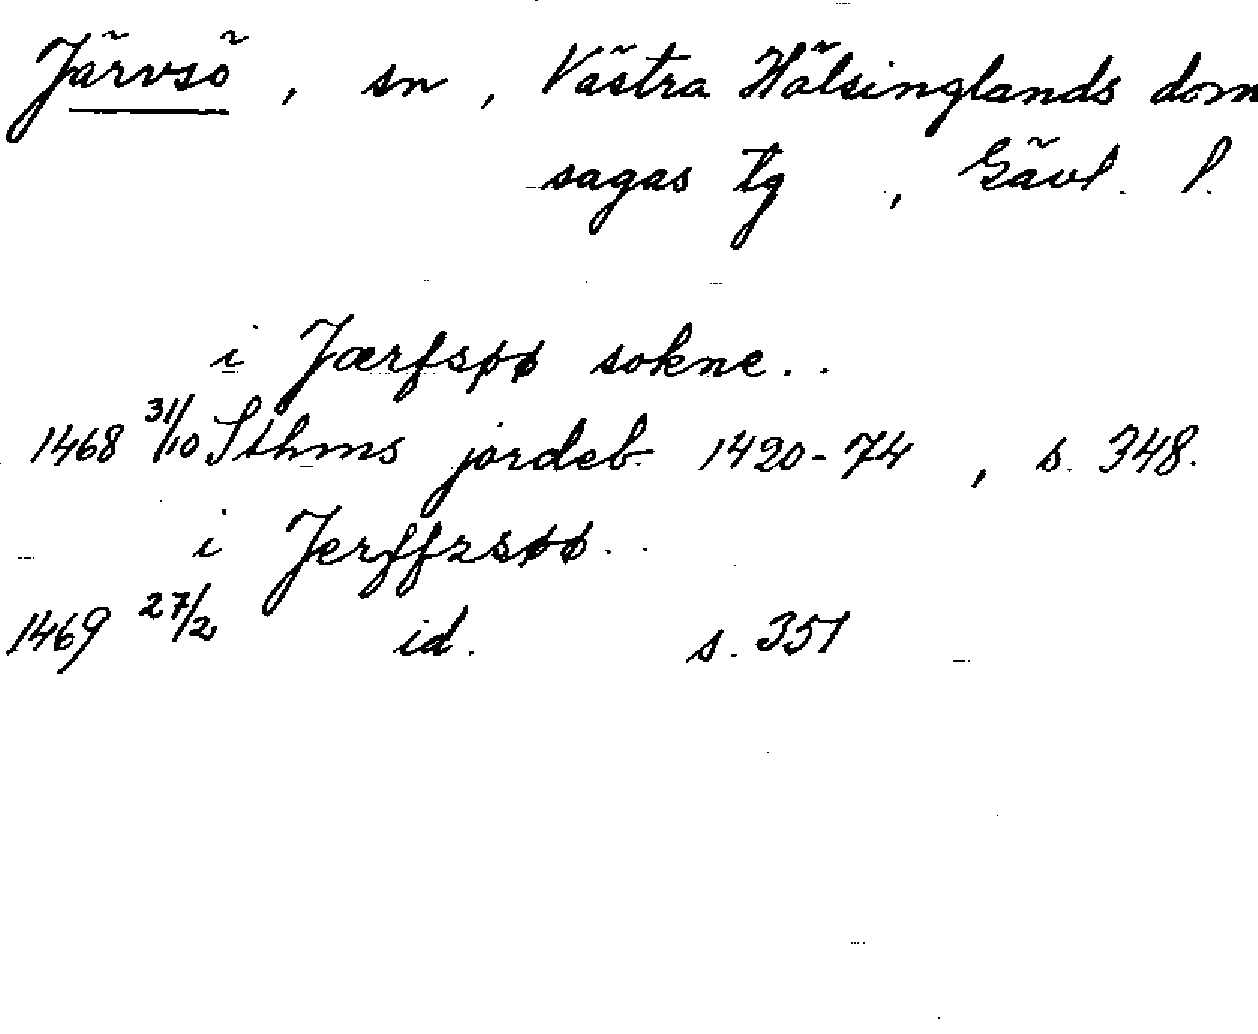 Järvsö, sn, Västra Hälsinglands dom
sagas tg, Gävl. l.
i Jærfsøø sokne..
1468 31/10 Sthms jordeb 1420-74, s. 348.
i Jerffzsøø..
1469 27/2 id. s. 351